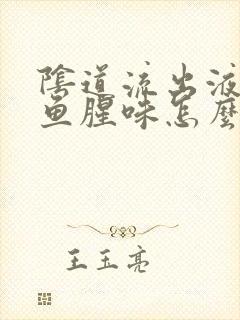 陰道流出液
鱼腥味怎麼
王玉亮